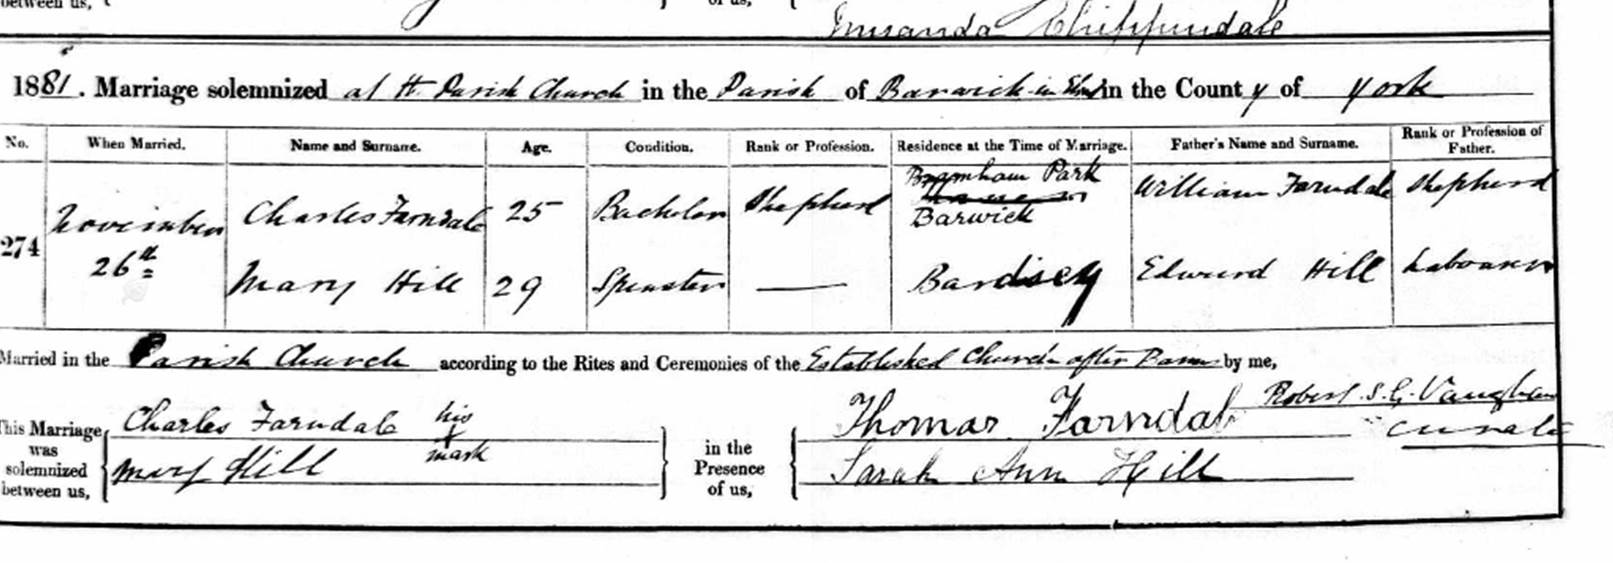 between us,
of us,
Miranda Chippindale
1881. Marriage solemnized at the Parish Church in the Parish of Barwick in Elmet in the County of York
No. When Married. Name and Surname. Age. Condition. Rank or Profession. Residence at the Time of Marriage. Father's Name and Surname. Rank or Profession of Father.
274 November 26th Charles Farndale 25 Bachelor Shepherd Bramham Park Barwick William Farndale Shepherd
Mary Hill 29 Spinster — Bardsey Edward Hill Labourer
Married in the Parish Church according to the Rites and Ceremonies of the Established Church after Banns by me,
Robert. S. G. Vaughan
Curate
This Marriage was solemnized between us, Charles Farndale his X mark
Mary Hill
in the Presence of us, Thomas Farndale
Sarah Ann Hill